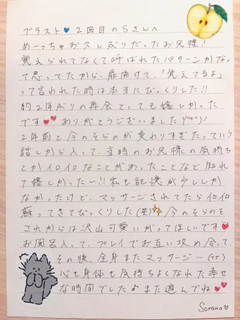 ブラスト💕2回目のSさんへ
めーっちゃお久しぶりだったお兄様!
覚えられてなくて呼ばれたパターンかなっ
て思ってたから、扉開けて、「覚えてるよ」
って言われた時は本当にびっくりした!!
約2年ぶりの再会とっても嬉しかった
です💕ありがとうございました
2年前と今のそらのが変わりすぎた。っていう
話しから入って、当時のお兄様の気持ち
とかイロイロなことがあったことなど知れ
て嬉しかったー!!私も記憶が少ししか
なかったけど、マッサージされてたらイロイロ
蘇ってきてびっくりした(笑)今のそらのを
これからは沢山可愛いがってほしいです💕
お風呂入って、プレイでお互い攻め合って、
その後、全身またマッサージ
心も身体も気持ちよくなれた幸せ
な時間でした♪また遊んでね
Sorano